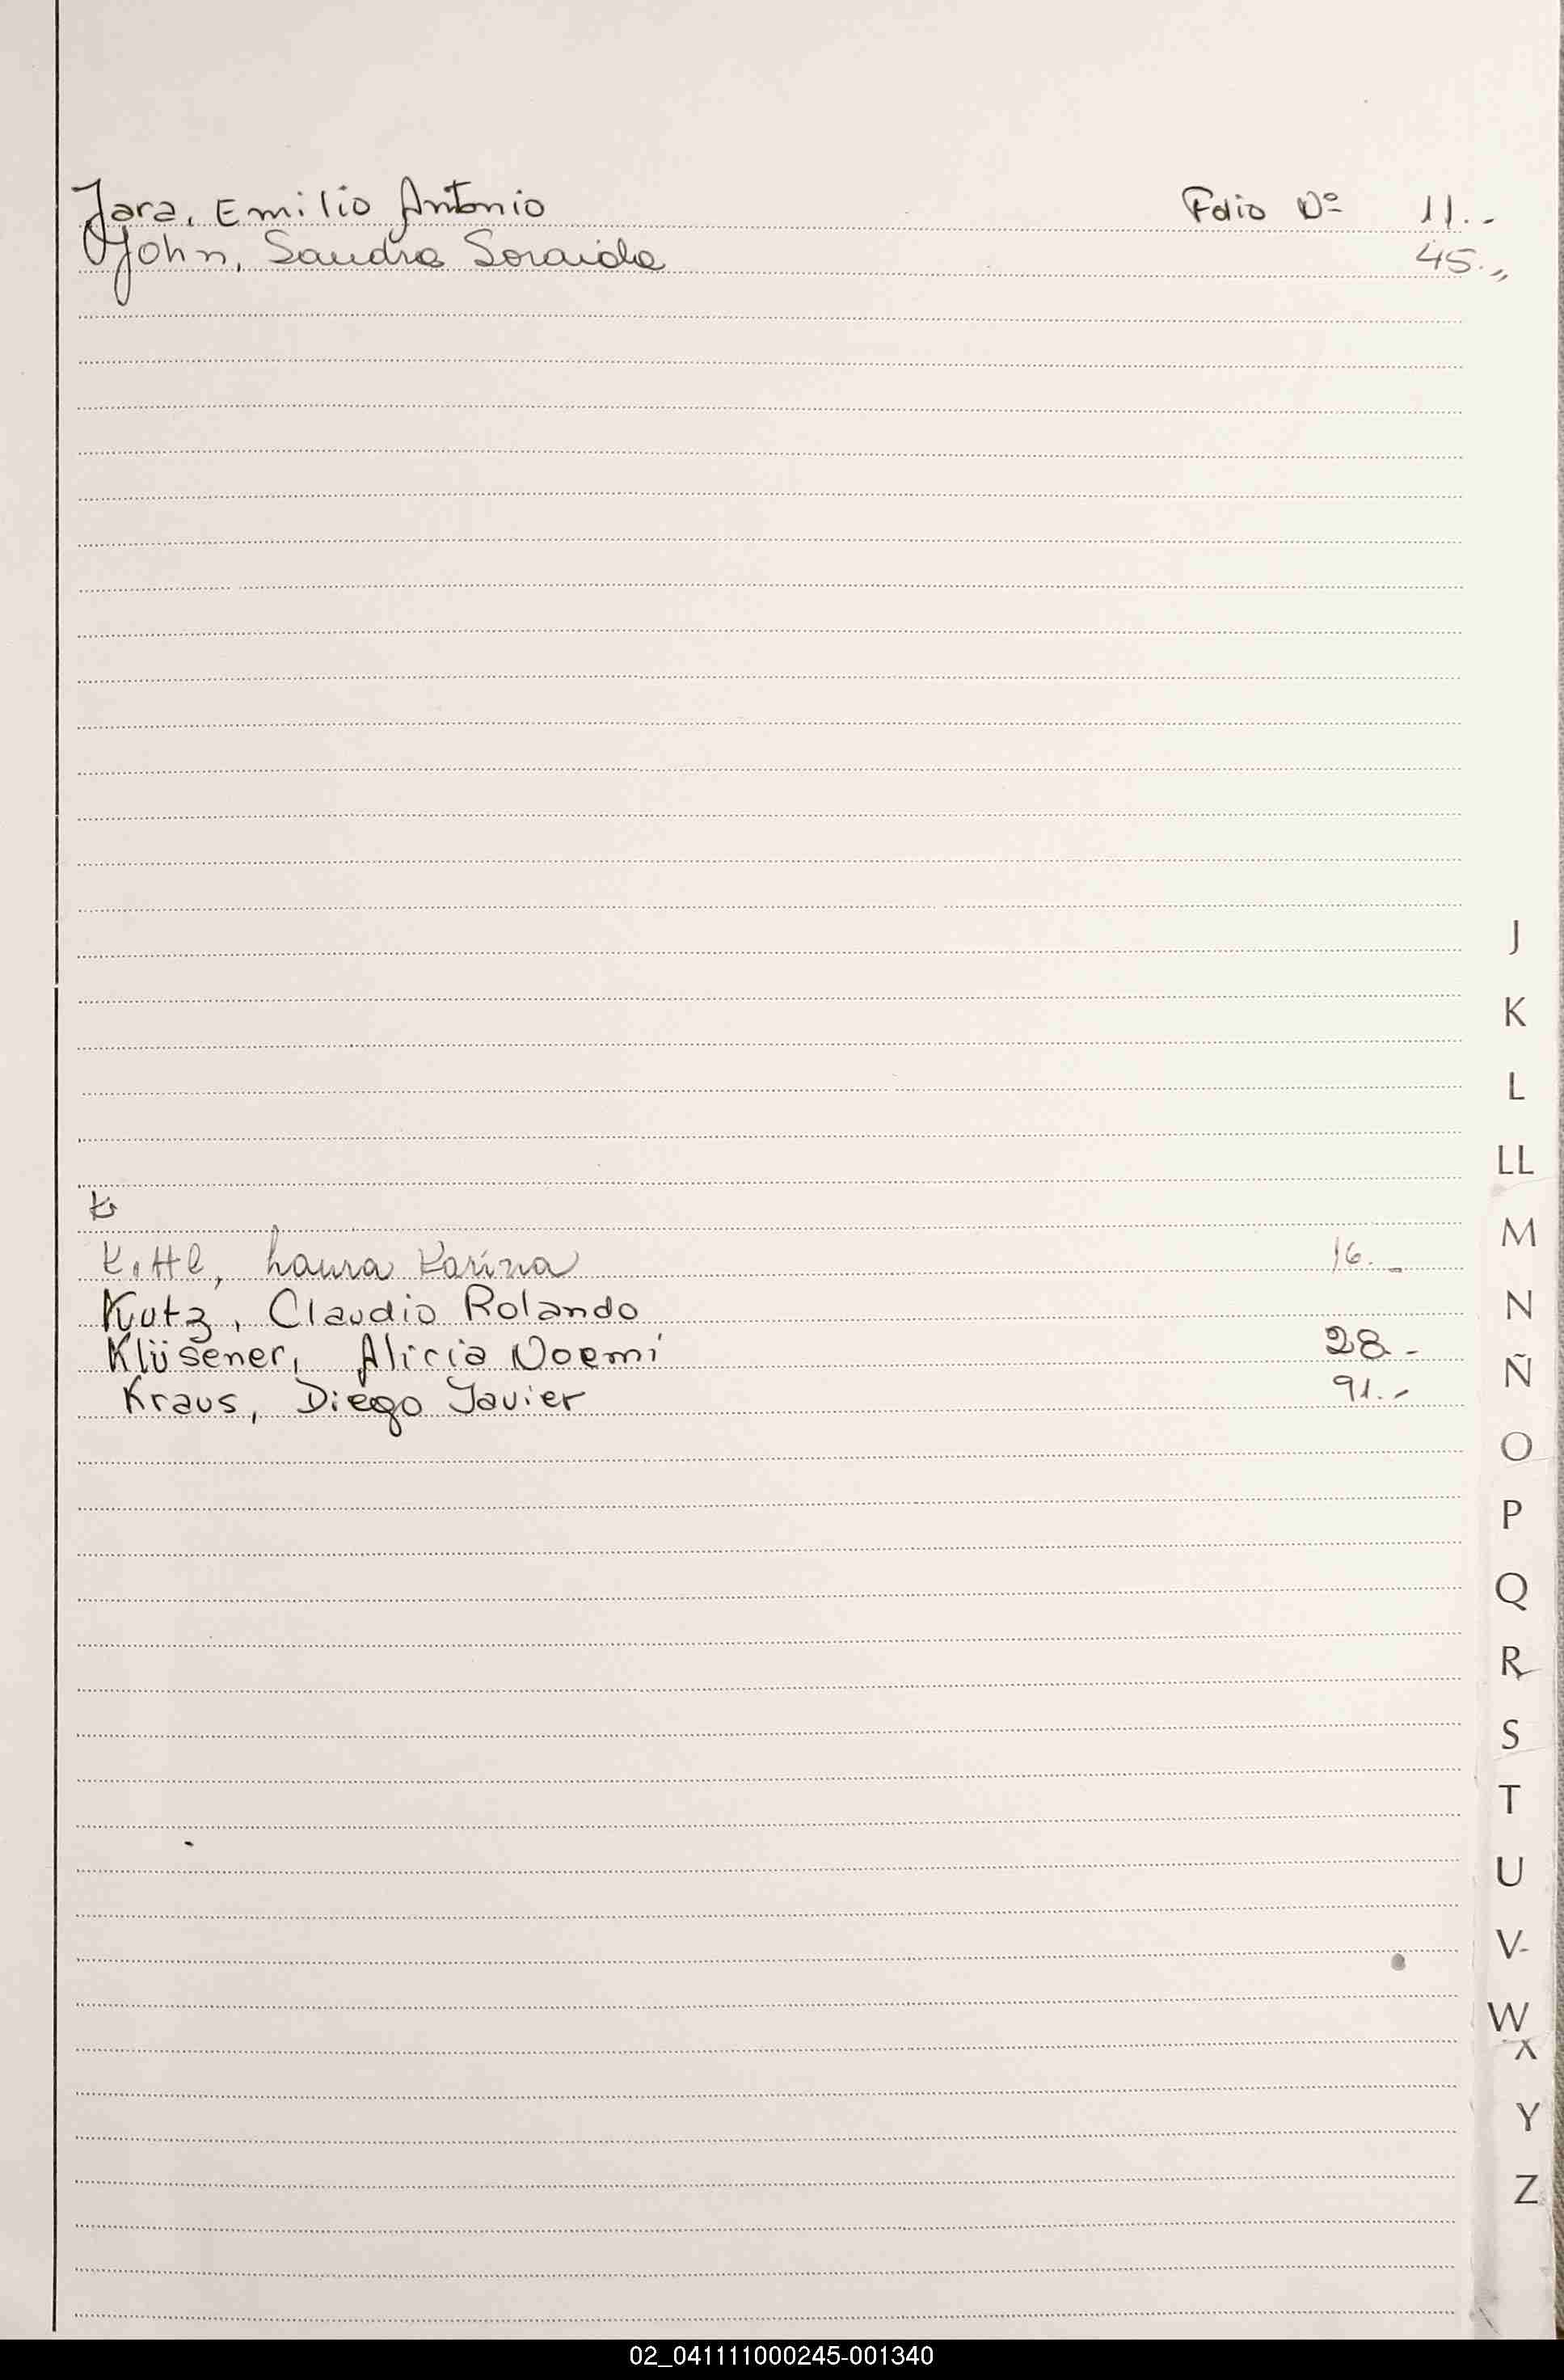 Jara, Emilio Antonio Folio Nº 11.-
John, Sandra Soraida 45.-
J
K
L
LL
K
Kittl, Laura Karina 16.-
M
Kutz, Claudio Rolando
N
Klüsener, Alicia Noemí 28.-
Ñ
Kraus, Diego Javier 91.-
O
P
Q
R
S
T
U
V
W
X
Y
Z
02_041111000245-001340